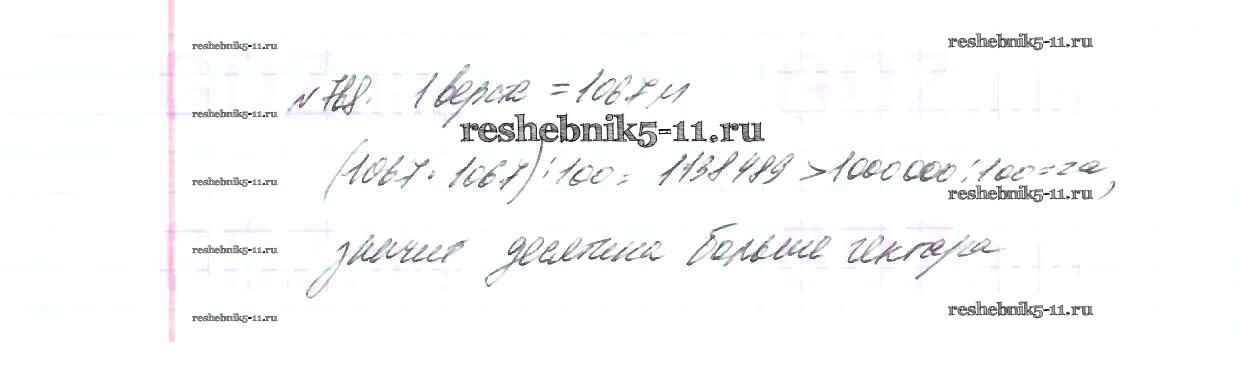 reshebnik5-11.ru
reshebnik5-11.ru
№ 788. 1 верста = 1067 м
reshebnik5-11.ru
reshebnik5-11.ru
(1067 · 1067) : 100 = 1138489 > 1000000 : 100 = га,
reshebnik5-11.ru
reshebnik5-11.ru
значит десятина больше гектара
reshebnik5-11.ru
reshebnik5-11.ru
reshebnik5-11.ru